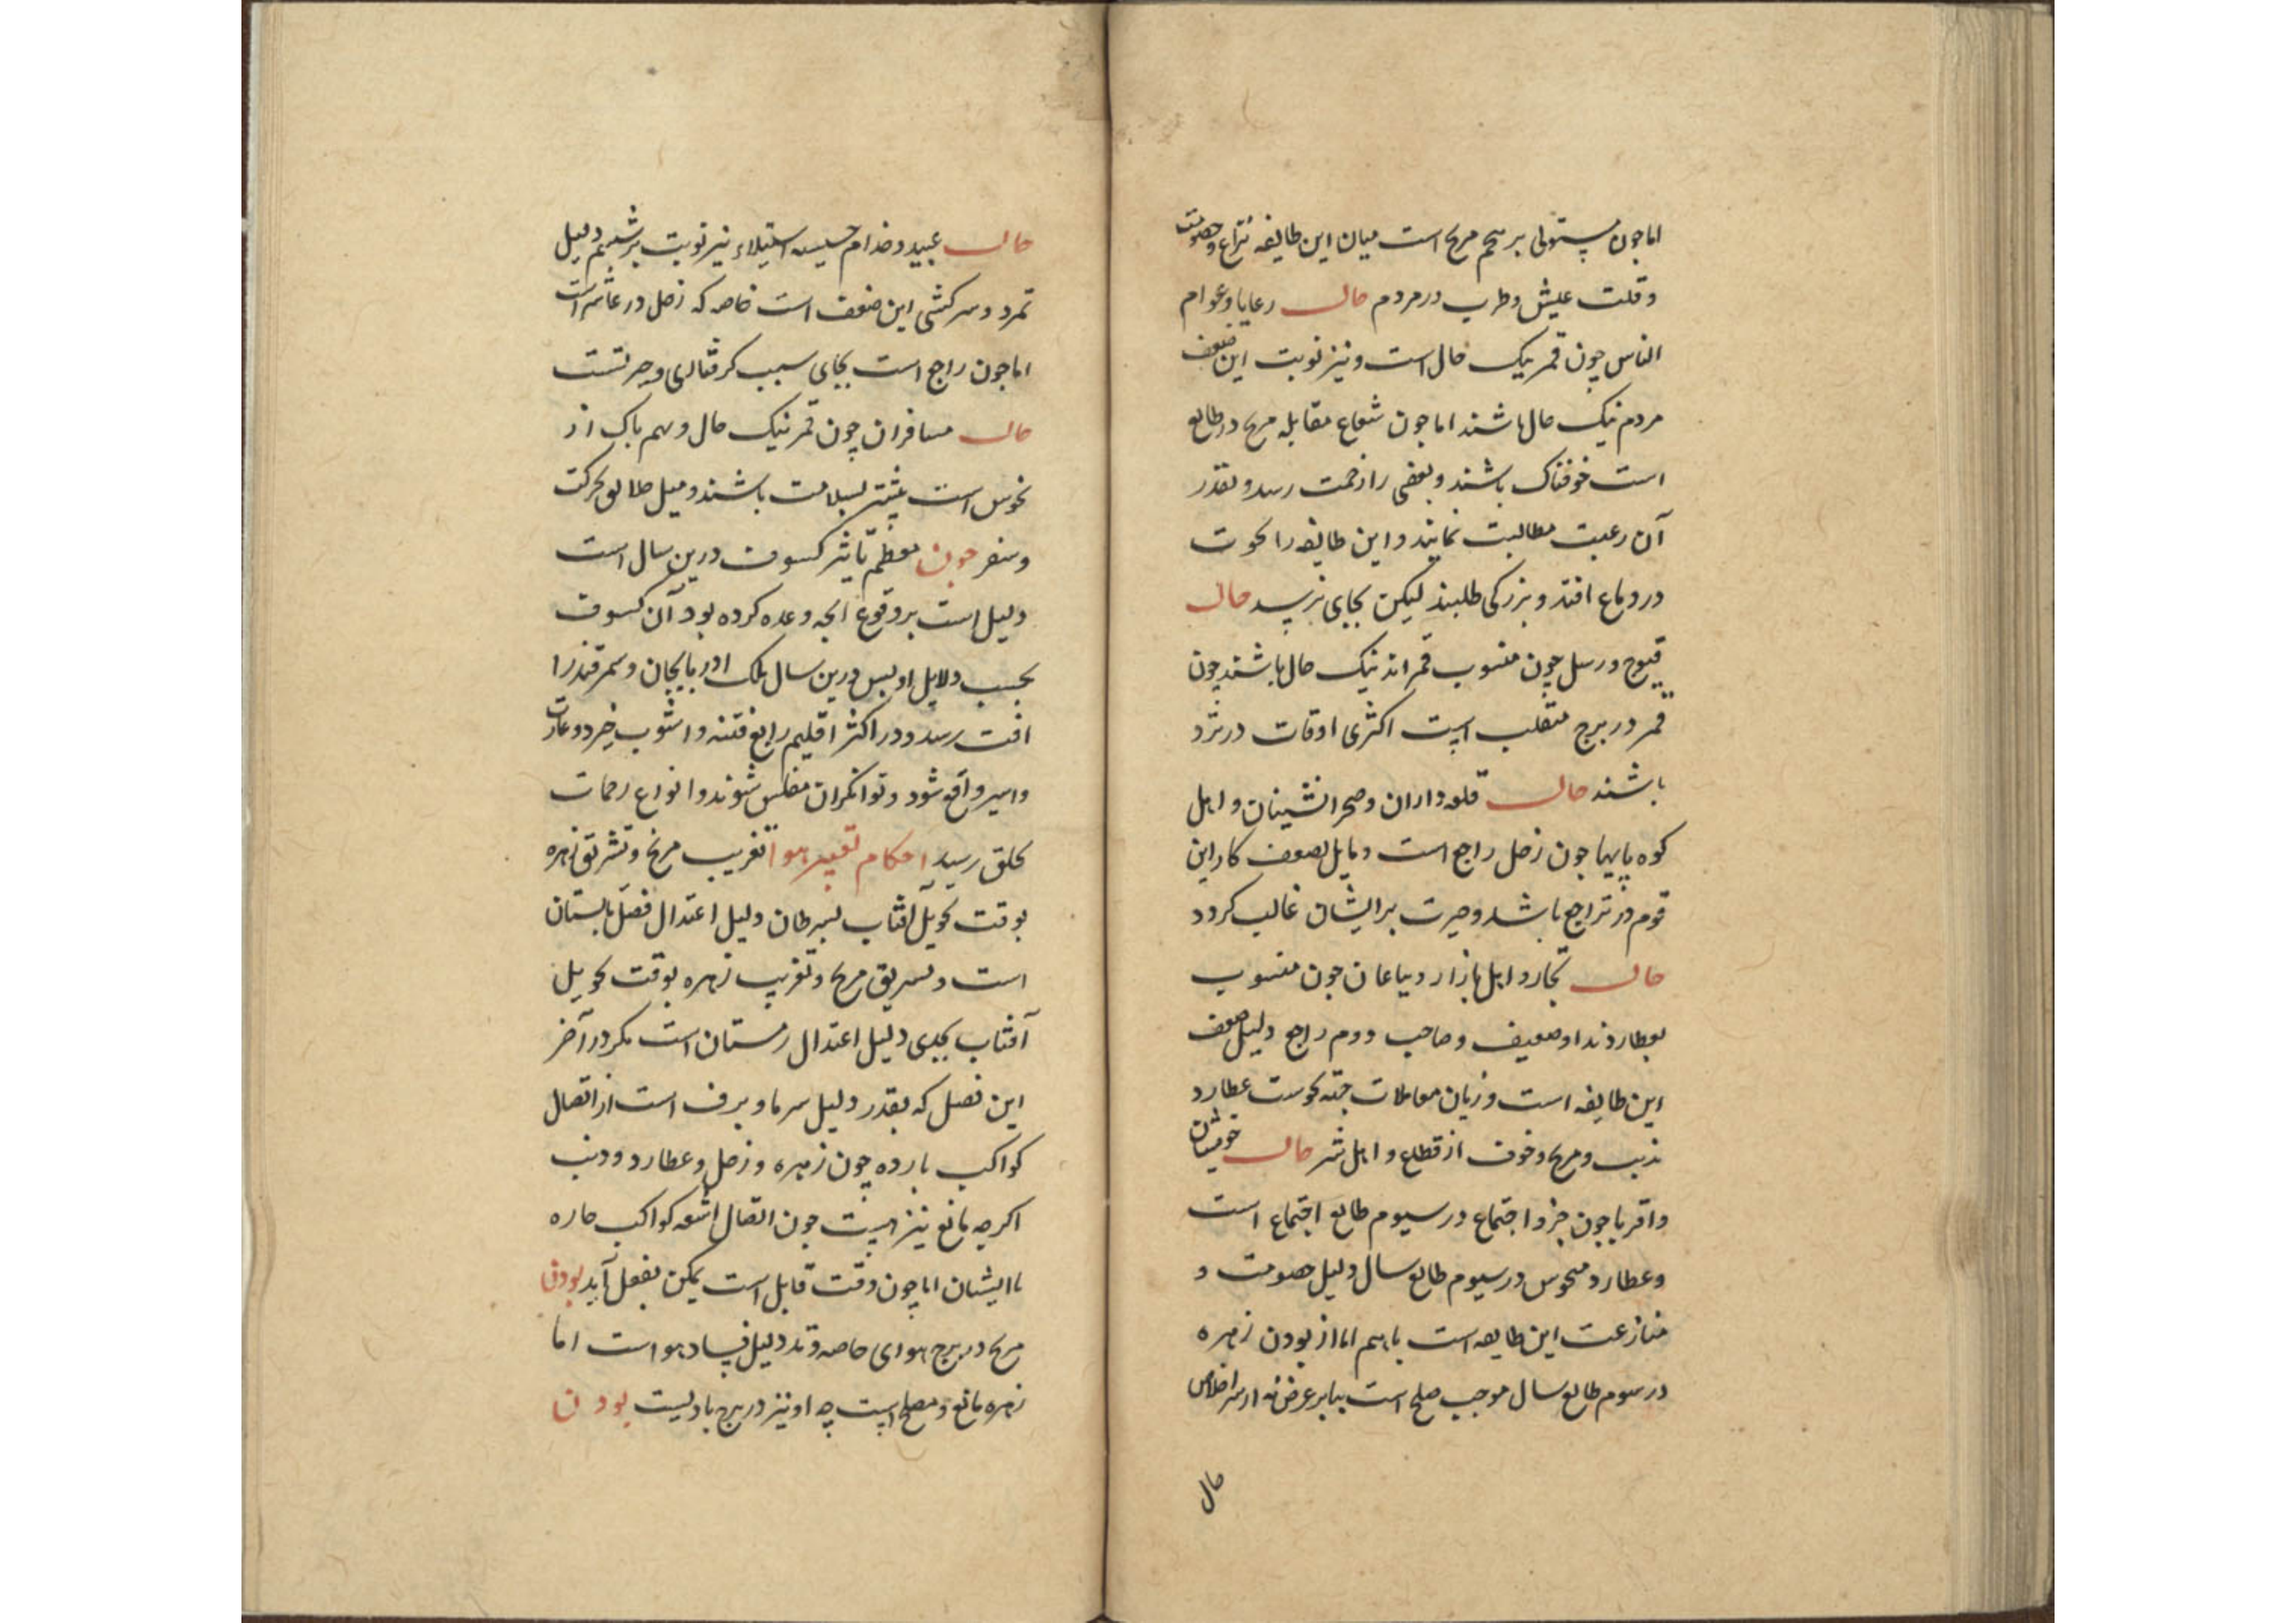 اما چون مستولی بر پنجم مریخ است میان این طایفه نزاع و خصومت
و قلت عیش و طرب در مردم حال رعایا و عوام
الناس چون قمر نیک حال است و نیز نوبت این صنف
مردم نیک حال باشند اما چون شعاع مقابله مریخ در طالع
است خوفناک باشند و بعضی را زحمت رسد و بقدر
آن رعیت مطالبت نمایند و این طایفه را نخوت
در دماغ افتد و بزرگی طلبند لیکن بجای نرسد حال
و رسل چون منسوب قمر اند نیک حال باشند چون
قمر در برج منقلب است اکثری اوقات در تردد
باشند حال قلعه داران و صحرانشینان و اهل
کوه پایها چون زحل راجع است و مایل بضعف کار این
قوم در تراجع باشد و حیرت بر ایشان غالب کردد
حال تجار و اهل بازار و بیاعان چون منسوب
بعطاردند او ضعیف و صاحب دوم راجع دلیل ضعف
این طایفه است و زیان معاملات جهة نحوست عطارد
بذنب و مریخ و خوف از قطاع و اهل شر حال خویشان
و اقربا چون جزو اجتماع در سیوم طالع اجتماع است
و عطارد منحوس در سیوم طالع سال دلیل خصومت و
منازعت این طایفه است باهم اما از بودن زهره
در سوم طالع سال موجب صلح است بنابر غرض نه از سر اخلاص
حال
حال عبید و خدام استیلاء نیر نوبت بر ششم دلیل
تمرد و سرکشی این صنف است خاصه که زحل در عاشر است
اما چون راجع است بجای سبب کرفتاری و حرتست
حال مسافران چون قمر نیک حال و سهم پاک از
نحوس است بیشتر بسلامت باشند و میل خلایق بحرکت
و سفر چون معظم تأثیر کسوف درین سال است
دلیل است بر وقوع آنچه وعده کرده بود آن کسوف
بحسب دلایل او پس درین سال ملک ادربایجان و سمرقند را
افت رسد و در اکثر اقلیم رابع فتنه و اشوب خیزد و غارت
و اسیر واقع شود و توانکران مفلس شوند و انواع زحمات
بخلق رسید احکام تغییر هوا تغریب مریخ و تشریق زهره
بوقت تحویل آفتاب بسرطان دلیل اعتدال فصل تابستان
است و تشریق مریخ و تغریب زهره بوقت تحویل
آفتاب بجدی دلیل اعتدال زمستان است مکر در آخر
این فصل که بقدر دلیل سرما و برف است از اتصال
کواکب بارده چون زهره و زحل و عطارد و ذنب
اکرچه مانع نیز هست چون اتصال اشعه کواکب حاره
با ایشان اما چون وقت قابل است یمکن بفعل آید بودن
مریخ در برج هوای خاصه وتد دلیل فساد هواست اما
زهره مانع و مصلح است چه او نیز در برج بادیست بودن